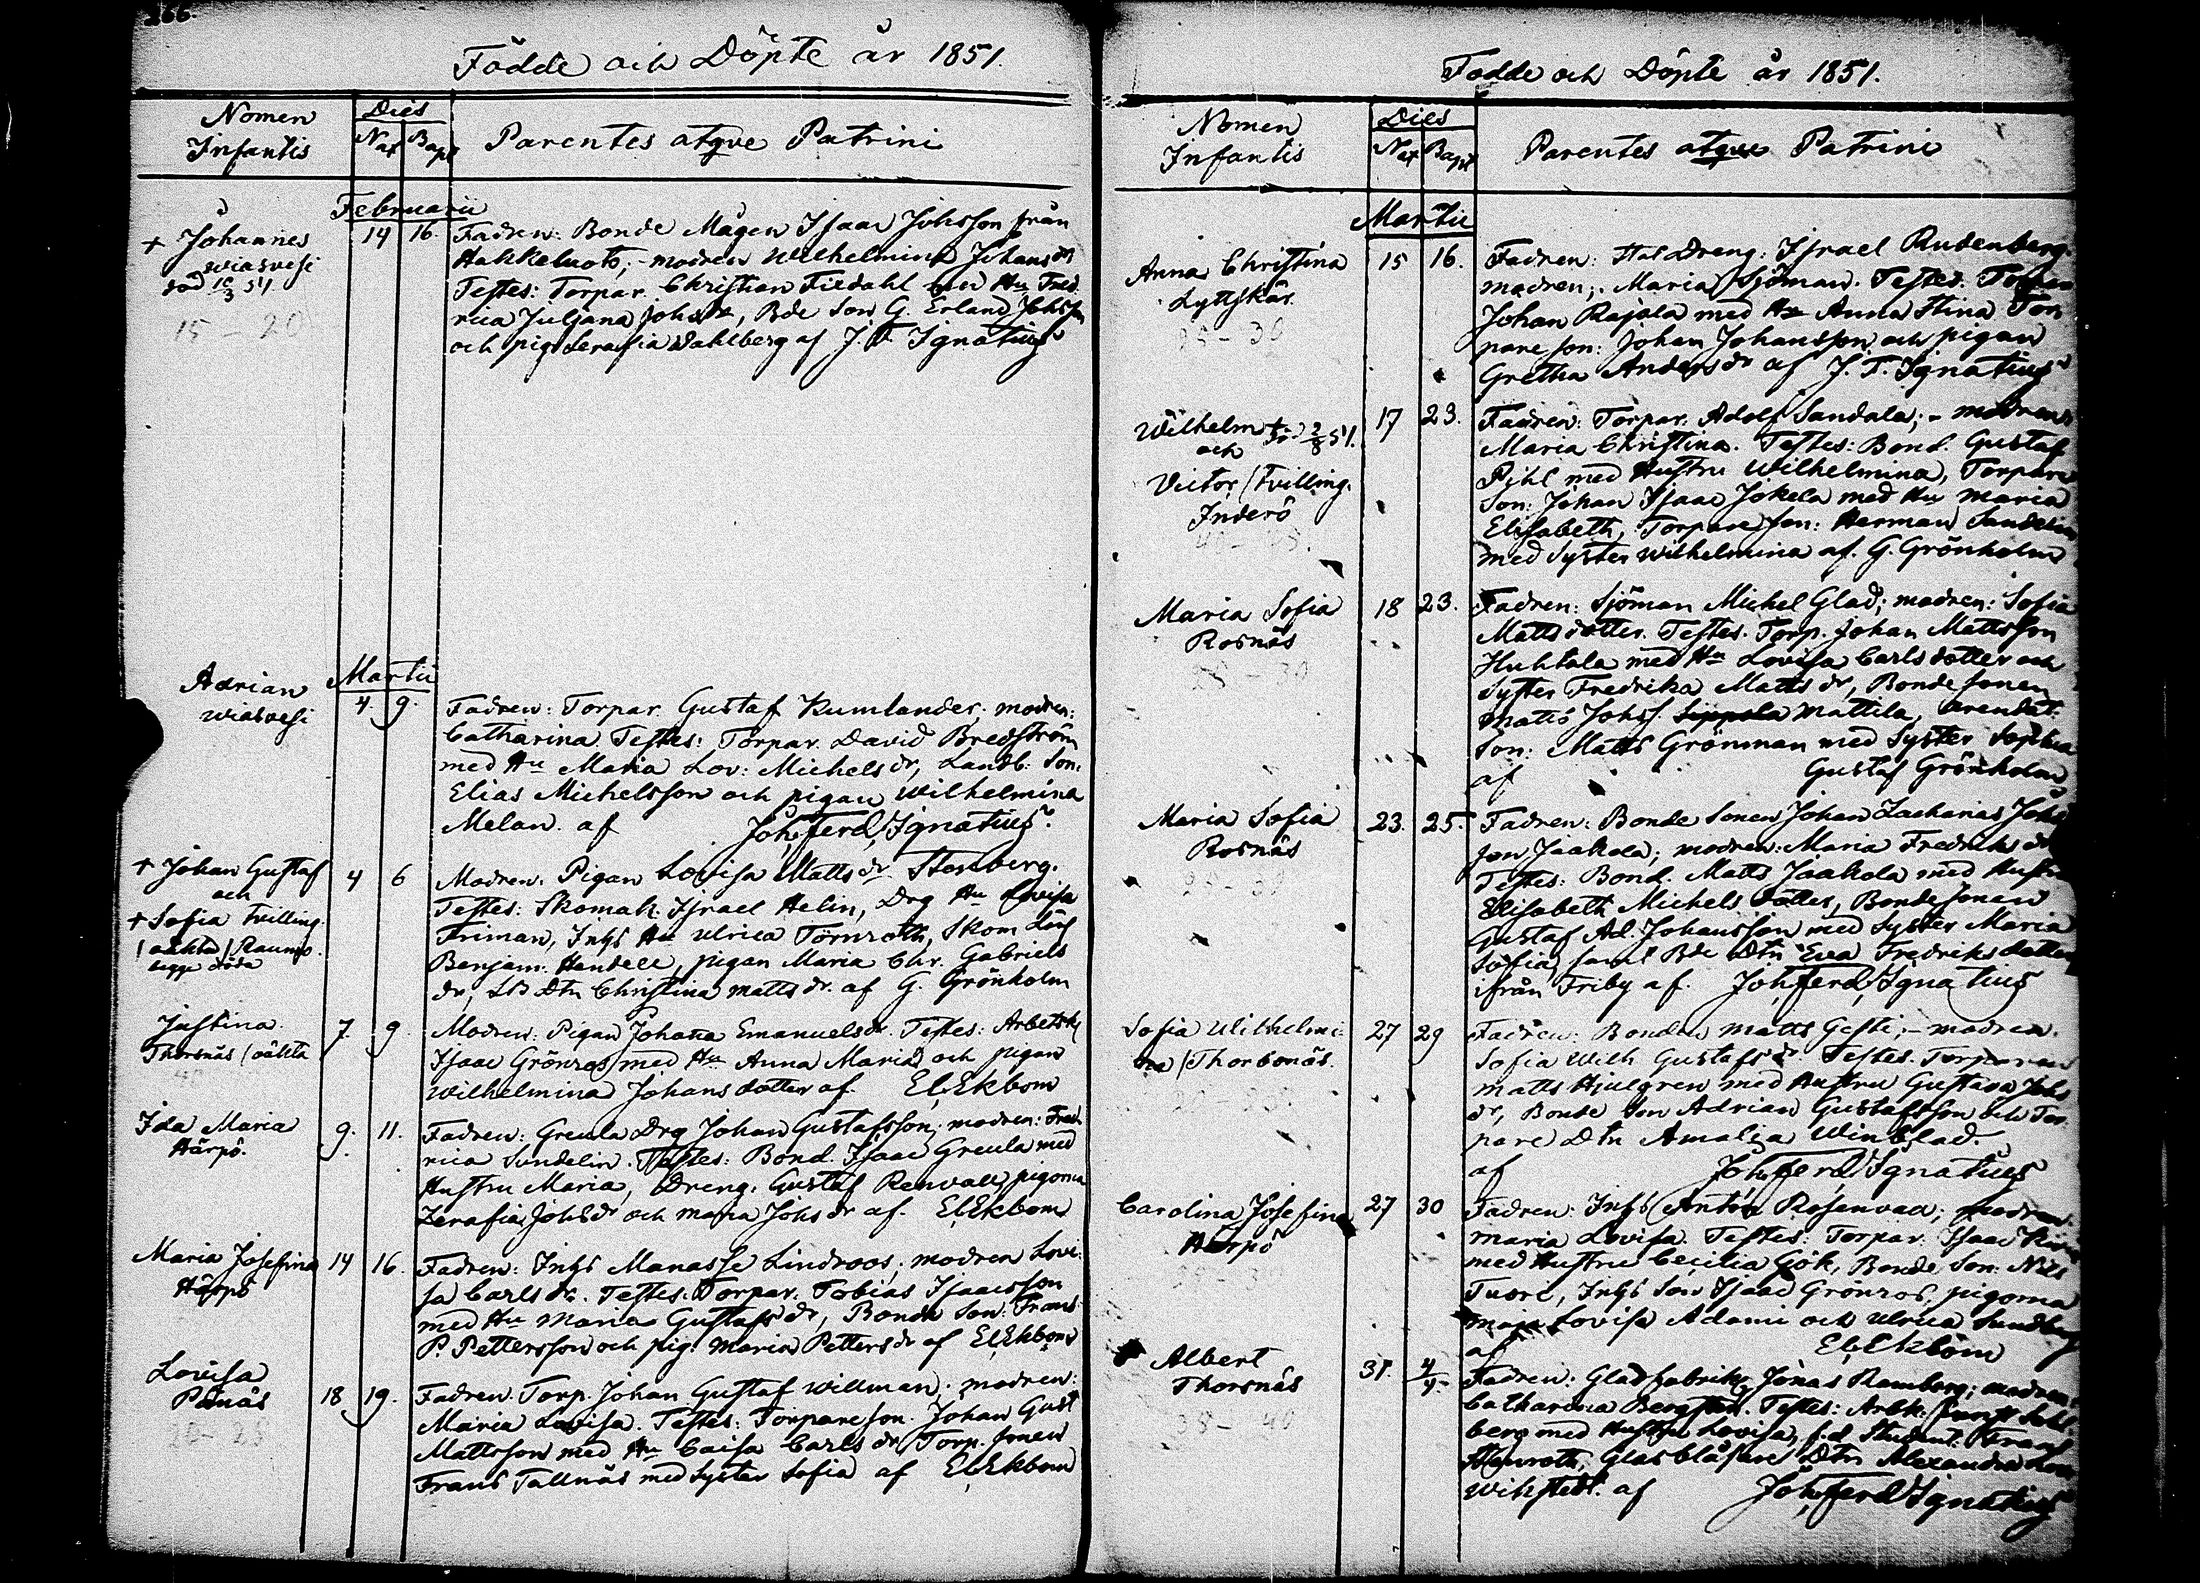 266.
Födde och Döpte år 1851.
Nomen Infantis
Dies
Nat Bapt
Parentes atqve Patrini
Februarii
+ Johannes
Wiasvesi
död 10/3 51
15 - 20
14 16.
Fadren: Bonde Mågen Isaac Johsson från
Hakkeluoto; - modren Wilhelmina Johans dr
Testes: Torpar. Christian Fiedahl med Hu Fred
rica Juljana Johs dr, Bde Son G. Erland Johsson
och pig. Serafia Wahlberg af J. F. Ignatius
Martii
Adrian
Wiasvesi
4 9.
Fadren: Torpar. Gustaf Kumlander; modren:
Catharina. Testes: Torpar. David Bredström
med Hu Maria Lov: Michels dr, Landb: Son.
Elias Michelsson och pigan Wilhelmina
Melan. af Joh. Ferd. Ignatius.
+ Johan Gustaf
och
+ Sofia tvilling.
(oäkta) Raumo.
begge döda
4 6
Modren: Pigan Lovisa Matts dr Stenberg.
Testes: Skomak. Israel Helin, Drg Hu Lovisa
Friman, Inhs Hu Ulrica Törnroth, Skom Lärl
Benjam: Handell, pigan Maria Chr. Gabriels
dr, Dtn Christina Matts dr. af G. Grönholm
Justina.
Thorsnäs (oäkta
7. 9.
Modren: Pigan Johana Emanuels dr. Testes: Arbetsk
Isaac Grönros med Hu Anna Maria och pigan
Wilhelmina Johans dotter af. El. Ekbom
Ida Maria
Härpö.
9. 11.
Fadren: Greula Drg Johan Gustafsson; modren: Fred
rica Sundelin. Testes: Bond. Isaac Greula med
Hustru Maria, Dreng. Gustaf Renvall, pigorna
Zerafia Johs dr och Maria Johs dr af. El. Ekbom
Maria Josefina
Härpö
14 16.
Fadren: Inhs Manasse Lindroos; modren Lovi-
sa Carls dr. Testes: Torpar. Tobias Isaacsson
med Hu Maria Gustafs dr, Bonde Son: Frans
P. Pettersson och pig. Maria Petters dr af El. Ekbom
Lovisa
Pänäs
20 - 25
18 19.
Fadren: Torp. Johan Gustaf Willman; modren:
Maria Lovisa. Testes: Torpare son. Johan Gust
Mattsson med Hu Caisa Carls dr, Torp. sonen
Frans Tallnäs med Syster Sofia af El. Ekbom
Födde och Döpte år 1851.
Nomen Infantis
Dies
Nat Bapt
Parentes atqve Patrini
Martii
Anna Christina
Lyttskär
25 - 30
15 16.
Fadren: Dreng: Israel Rudenberg.
modren; Maria Sjöman. Testes. Torpar
Johan Rajala med Hu Anna Stina Tor
pare son: Johan Johansson och pigan
Gretha Anders dr af J. F. Ignatius
Wilhelm + 2/8 51.
och
Victor (tvilling.
Inderö
17 23.
Fadren: Torpar. Adolf Sandala; - modren
Maria Christina. Testes: Bond. Gustaf
Pihl med Hustru Wilhelmina, Torpare
Son: Johan Isaac Jokela med Hu Maria
Elisabeth, Torpare son: Herman Sundelin
med Syster Wilhelmina af. G. Grönholm
Maria Sofia
Rosnäs
18 23.
Fadren: Sjöman Michel Glad; modren: Sofia
Matts dotter. Testes. Torp. Johan Mattsson
Huhtala med Hu Lovisa Carls dotter och
Syster Fredrika Matts dr, Bonde sonen
Matts Johs s. Sippola Mattila, arendat.
Son: Matts Grönman med Syster Sophia
af Gustaf Grönholm
Maria Sofia
Rosnäs
23. 25.
Fadren: Bonde Sonen Johan Zacharias Johs
son Jaakola; modren: Maria Fredriks dr
Testes: Bond. Matts Jaakola med Hustru
Elisabeth Michels dotter, Bonde sonen
Gustaf Ad. Johansson med Syster Maria
Sofia, samt Bde Dtn Eva Fredriks dotter
ifrån Friby af. Joh. Ferd. Ignatius
Sofia Wilhelmi-
na (Thorbonäs.
27 29
Fadren: Bonden Matts Gesti; - modren.
Sofia Wilh. Gustafs dr. Testes. Torparen
Matts Hjulgren med Hustru Gustava Johs
dr, Bonde Son Adrian Gustafsson och Tor
pare Dtn Amalia Winblad.
af Joh. Ferd. Ignatius
Carolina Josefina
Härpö
27 30
Fadren: Inhs Anton Rosenvall; modren:
Maria Lovisa. Testes. Torpar. Isaac
med Hustru Cecilia Gök, Bonde Son: Nils
Tuori, Inhs Son Isaac Grönros, pigorna
Maja Lovisa Adami och Ulrica Sundberg
af El. Ekbom
Albert
Thorsnäs
35 - 40
31. 4/4.
Fadren: Glasfabrik. Jonas Ramberg; modren.
Catharina Bergsten. Testes: Arbk:
berg med Hustru Lovisa, f.d. Student. Frans
Glasblåsare Dtn Alexandra
Wikstedt. af Joh. Ferd. Ignatius